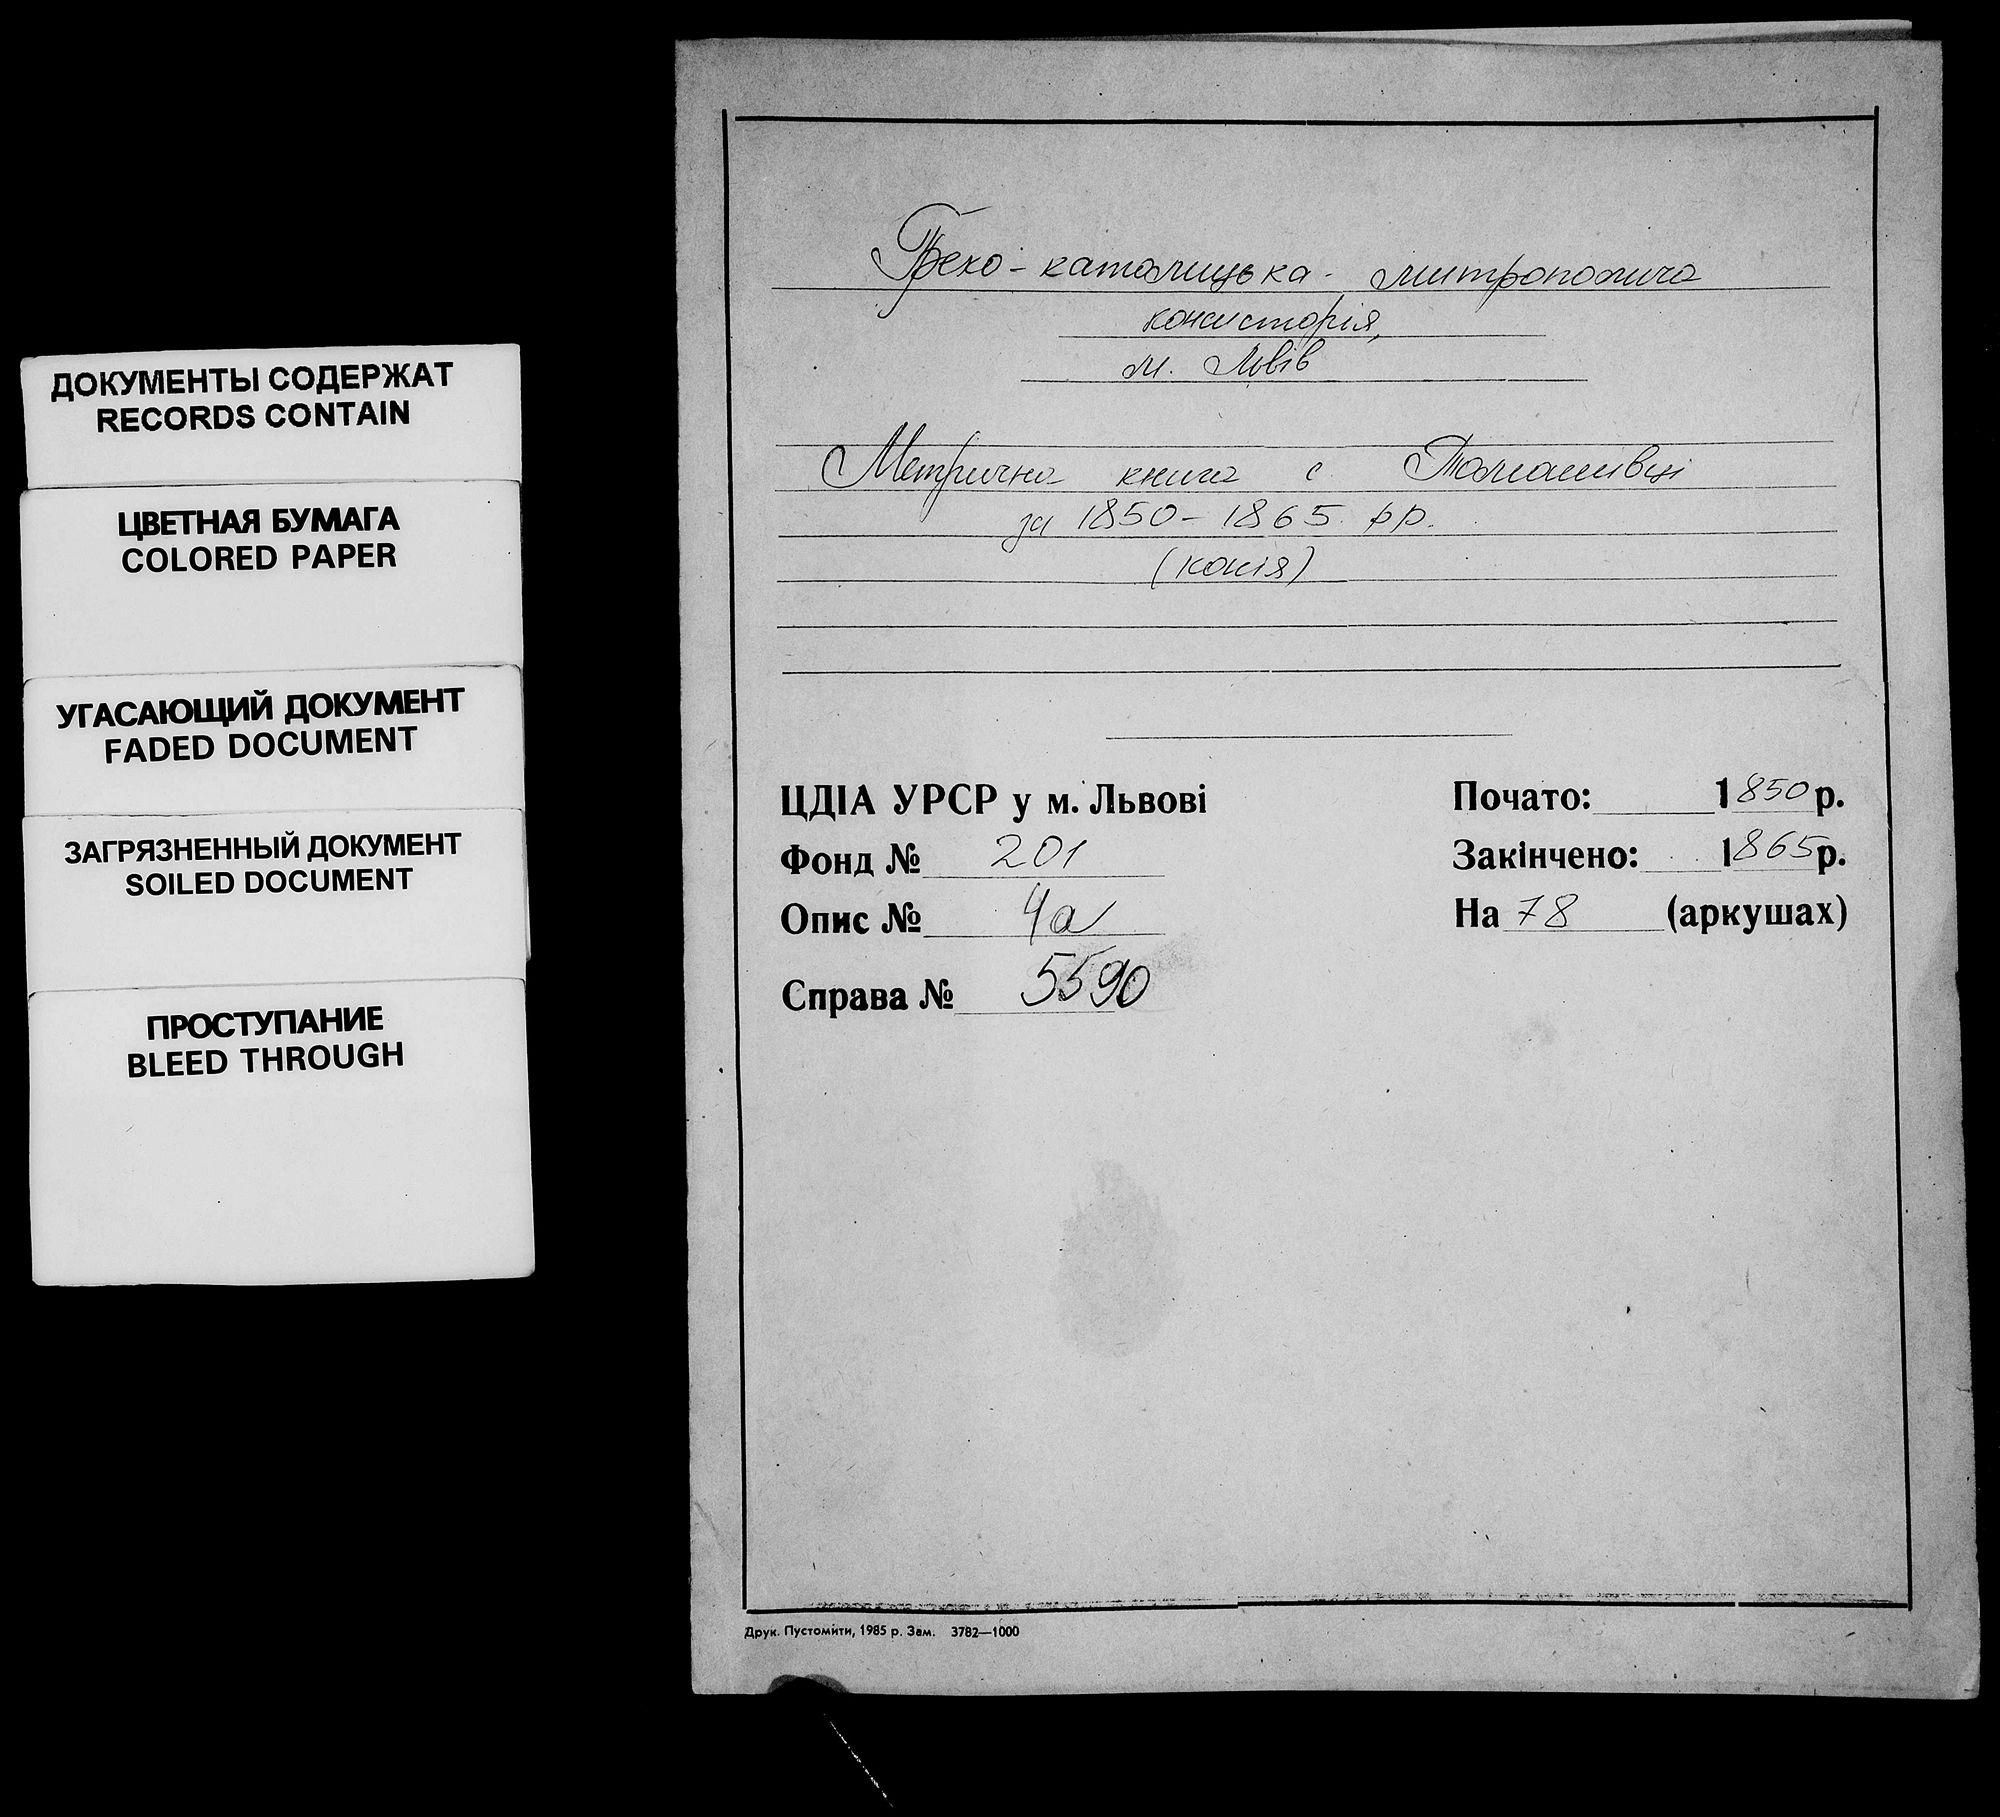 ДОКУМЕНТЫ СОДЕРЖАТ
RECORDS CONTAIN
ЦВЕТНАЯ БУМАГА
COLORED PAPER
УГАСАЮЩИЙ ДОКУМЕНТ
FADED DOCUMENT
ЗАГРЯЗНЕННЫЙ ДОКУМЕНТ
SOILED DOCUMENT
ПРОСТУПАНИЕ
BLEED THROUGH
Греко-католицька митрополича
консисторія,
м. Львів
Метрична книга с Томашівці
за 1850-1865 рр.
(копія)
ЦДІА УРСР у м. Львові
Фонд № 201
Опис № 4а
Справа № 5590
Почато: 1850 р.
Закінчено: 1865 р.
На 78 (аркушах)
Друк. Пустомити, 1985 р. Зам. 3782—1000